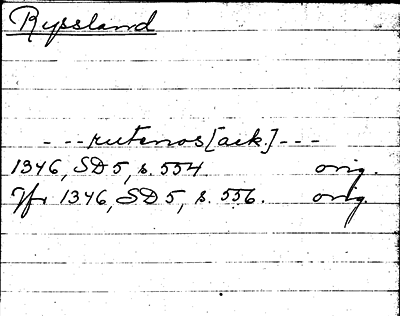 Ryssland
- -- rutenos [ack.] ---
1346, SD 5, s. 554 orig.
Jfr 1346, SD 5, s. 556. orig.